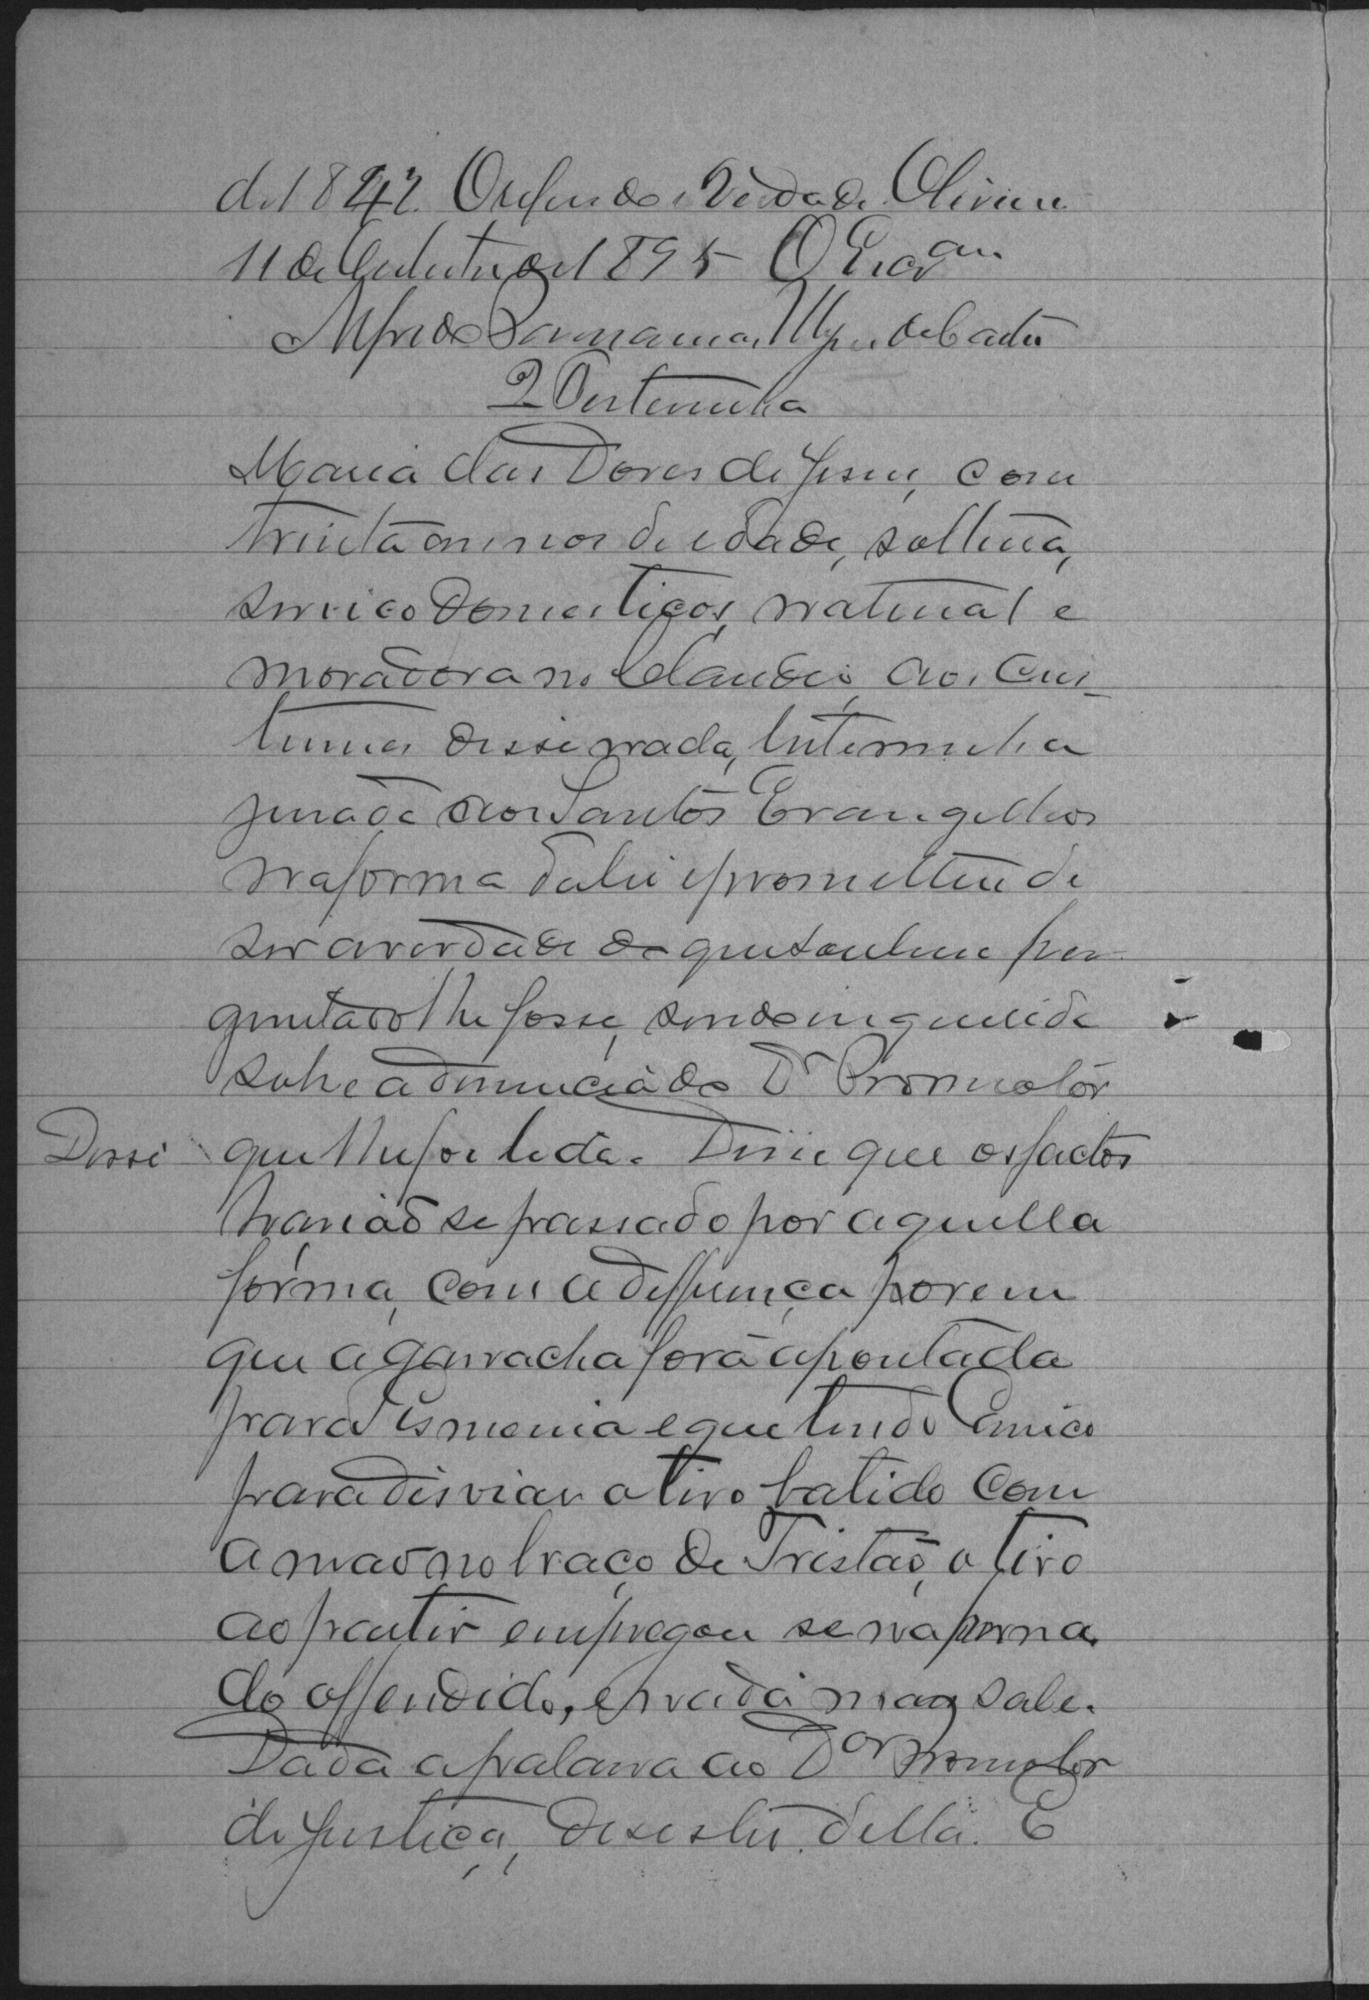 de 1842. O referido é verdade. Oliveira
11 de Outubro de 1895 O Escr.am
Alfredo de Castro
2 Testemunha
Maria das Dores de Jesus, com
trinta annos de edade, solteira,
serviço domesticos, natural e
moradora no Claudio, aos cus-
tumes disse nada, testemunha
jurada aos Santos Evangelhos
na forma da lei e prometteu di
ser a verdade do que soubesse e per
guntado lhe fosse, sendo inquerida
sobre a denuncia do Dr Promotor
Disse que lhe foi lida. Disse que os factos
havião se passado por aquella
fórma, com a differença porem
que a garrucha fora apontada
para Ismenia e que tendo Enico
para disviar o tiro batido com
a mão no braço de Tristão, o tiro
ao partir empregou se na perna
do offendido, e nada mais sabe.
Dada a palavra ao Dor Promotor
de Justiça, desestio della. E